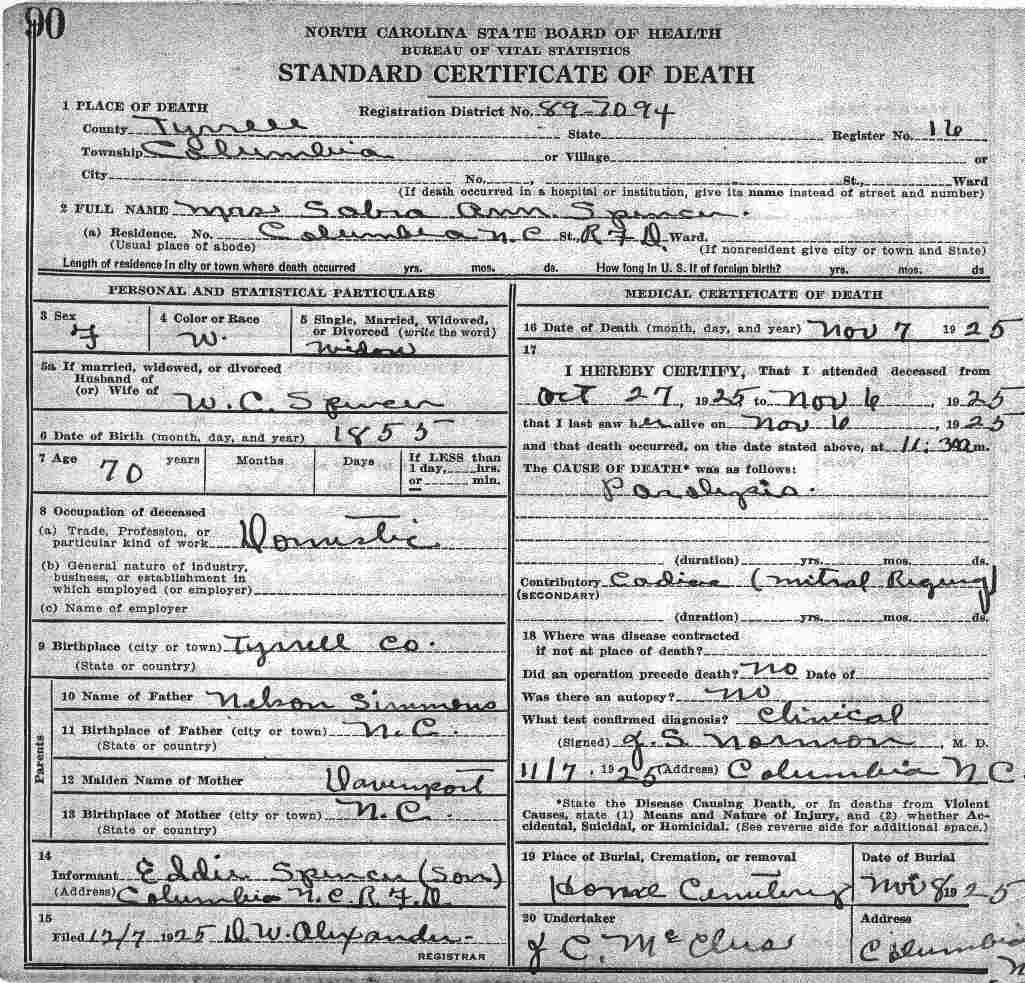 90
NORTH CAROLINA STATE BOARD OF HEALTH
BUREAU OF VITAL STATISTICS
STANDARD CERTIFICATE OF DEATH
1 PLACE OF DEATH Registration District No. 89-7094
County Tyrrell State Register No. 16
Township Columbia or Village or
City No. , St., Ward
(If death occurred in a hospital or institution, give its name instead of street and number)
2 FULL NAME Mrs Sabra Ann Spencer.
(a) Residence. No. Columbia N.C St., R F D. Ward.
(Usual place of abode) (If nonresident give city or town and State)
Length of residence in city or town where death occurred yrs. mos. ds. How long in U. S. if of foreign birth? yrs. mos. ds
PERSONAL AND STATISTICAL PARTICULARS
3 Sex 4 Color or Race 5 Single, Married, Widowed,
or Divorced (write the word)
F W. Widow
5a If married, widowed, or divorced
Husband of
(or) Wife of W. C. Spencer
6 Date of Birth (month, day, and year) 1855
7 Age 70 years Months Days If LESS than
1 day, hrs.
or min.
8 Occupation of deceased
(a) Trade, Profession, or
particular kind of work Domestic
(b) General nature of industry,
business, or establishment in
which employed (or employer)
(c) Name of employer
9 Birthplace (city or town) Tyrrell Co.
(State or country)
Parents
10 Name of Father Nelson Simmons
11 Birthplace of Father (city or town) N.C.
(State or country)
12 Maiden Name of Mother Davenport
13 Birthplace of Mother (city or town) N.C.
(State or country)
14
Informant Eddie Spencer (Son)
(Address) Columbia N.C. R.F.D.
15
Filed 12/7 1925 D. W. Alexander
REGISTRAR
MEDICAL CERTIFICATE OF DEATH
16 Date of Death (month, day, and year) Nov 7 1925
17
I HEREBY CERTIFY, That I attended deceased from
Oct 27, 1925 to Nov 6, 1925
that I last saw her alive on Nov 6, 1925
and that death occurred, on the date stated above, at 11:30 a m.
The CAUSE OF DEATH* was as follows:
Paralysis.
(duration) yrs. mos. ds.
Contributory Cadiac (Mitral Regurg)
(SECONDARY)
(duration) yrs. mos. ds.
18 Where was disease contracted
if not at place of death?
Did an operation precede death? No Date of
Was there an autopsy? No
What test confirmed diagnosis? Clinical
(Signed) J. S. Norman, M. D.
11/7, 1925 (Address) Columbia N C.
*State the Disease Causing Death, or in deaths from Violent
Causes, state (1) Means and Nature of Injury, and (2) whether Ac-
cidental, Suicidal, or Homicidal. (See reverse side for additional space.)
19 Place of Burial, Cremation, or removal Date of Burial
Home Cemetery Nov 8 1925
20 Undertaker Address
J C. Columbia